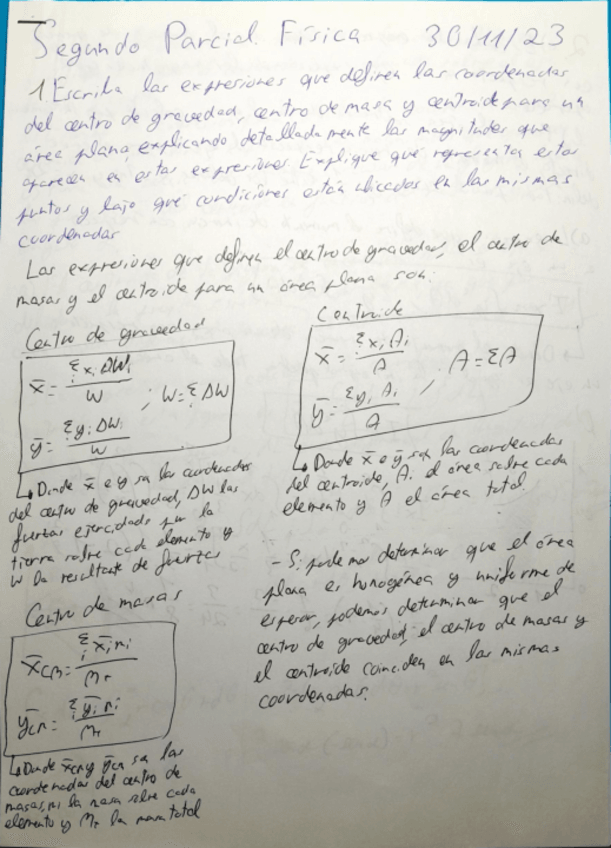 Segundo Parcial. Física 30/11/23
1 Escriba las expresiones que definen las coordenadas
del centro de gravedad, centro de masa y centroide para un
área plana, explicando detalladamente las magnitudes que
aparecen en estas expresiones. Explique qué representa estos
puntos y bajo qué condiciones están ubicados en las mismas
coordenadas
Las expresiones que definen el centro de gravedad, el centro de
masas y el centroide para un área plana son:
Centro de gravedad
x̄ = Σ xᵢ ΔWᵢ / W
ȳ = Σ yᵢ ΔWᵢ / W ; W = Σ ΔW
↳ Donde x̄ e y son las coordenadas
del centro de gravedad, ΔW las
fuerzas ejercidads por la
tierra sobre cada elemento y
W la resultante de fuerzas
Centro de masas
x̄CM = Σᵢ x̄ᵢ mᵢ / MT
ȳCM = Σᵢ ȳᵢ mᵢ / MT
↳ Donde x̄CM y ȳCM son las
coordenadas del centro de
masas, mi la masa sobre cada
elemento y MT la masa total
Centroide
x̄ = Σ xᵢ Aᵢ / A
ȳ = Σ yᵢ Aᵢ / A ; A = ΣA
↳ Donde x̄ e ȳ son las coordenadas
del centroide, Aᵢ el área sobre cada
elemento y A el área total.
- Si podemos determinar que el área
plana es homogénea y uniforme de
espesor, podemos determinar que el
centro de gravedad, el centro de masas y
el centroide coinciden en las mismas
coordenadas.